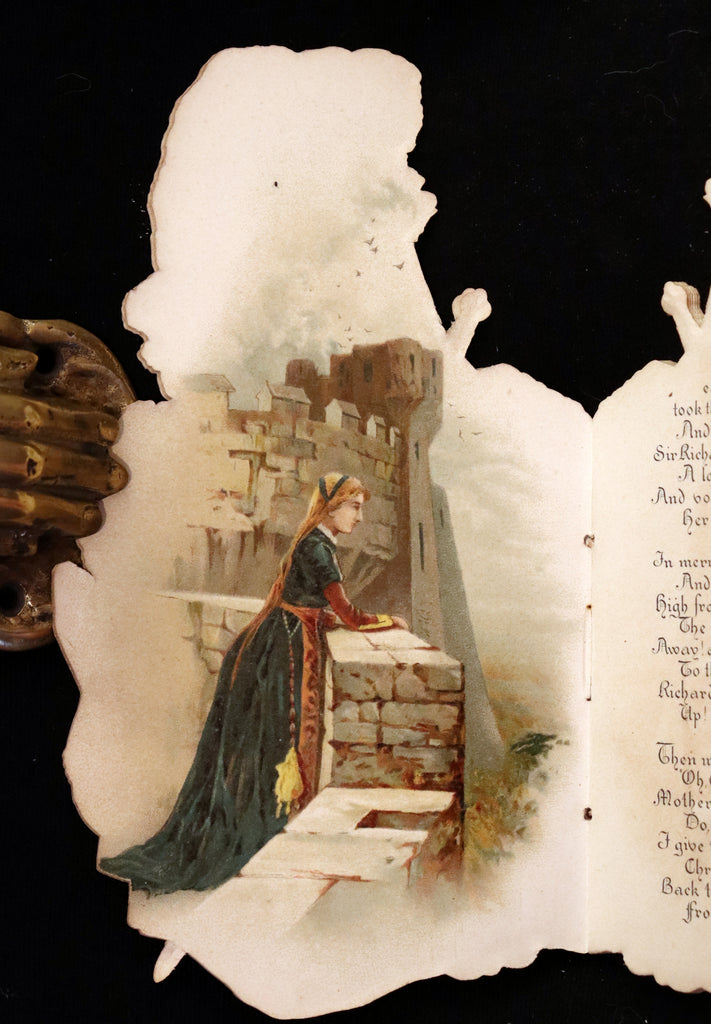 e
took t
And
Sir Rich
A l
And vo
Her
In merr
And
High fro
The
Away!
To t
Richar
Up!
Then w
"Oh,
Mother
Do,
I give
Chr
Back t
Fro